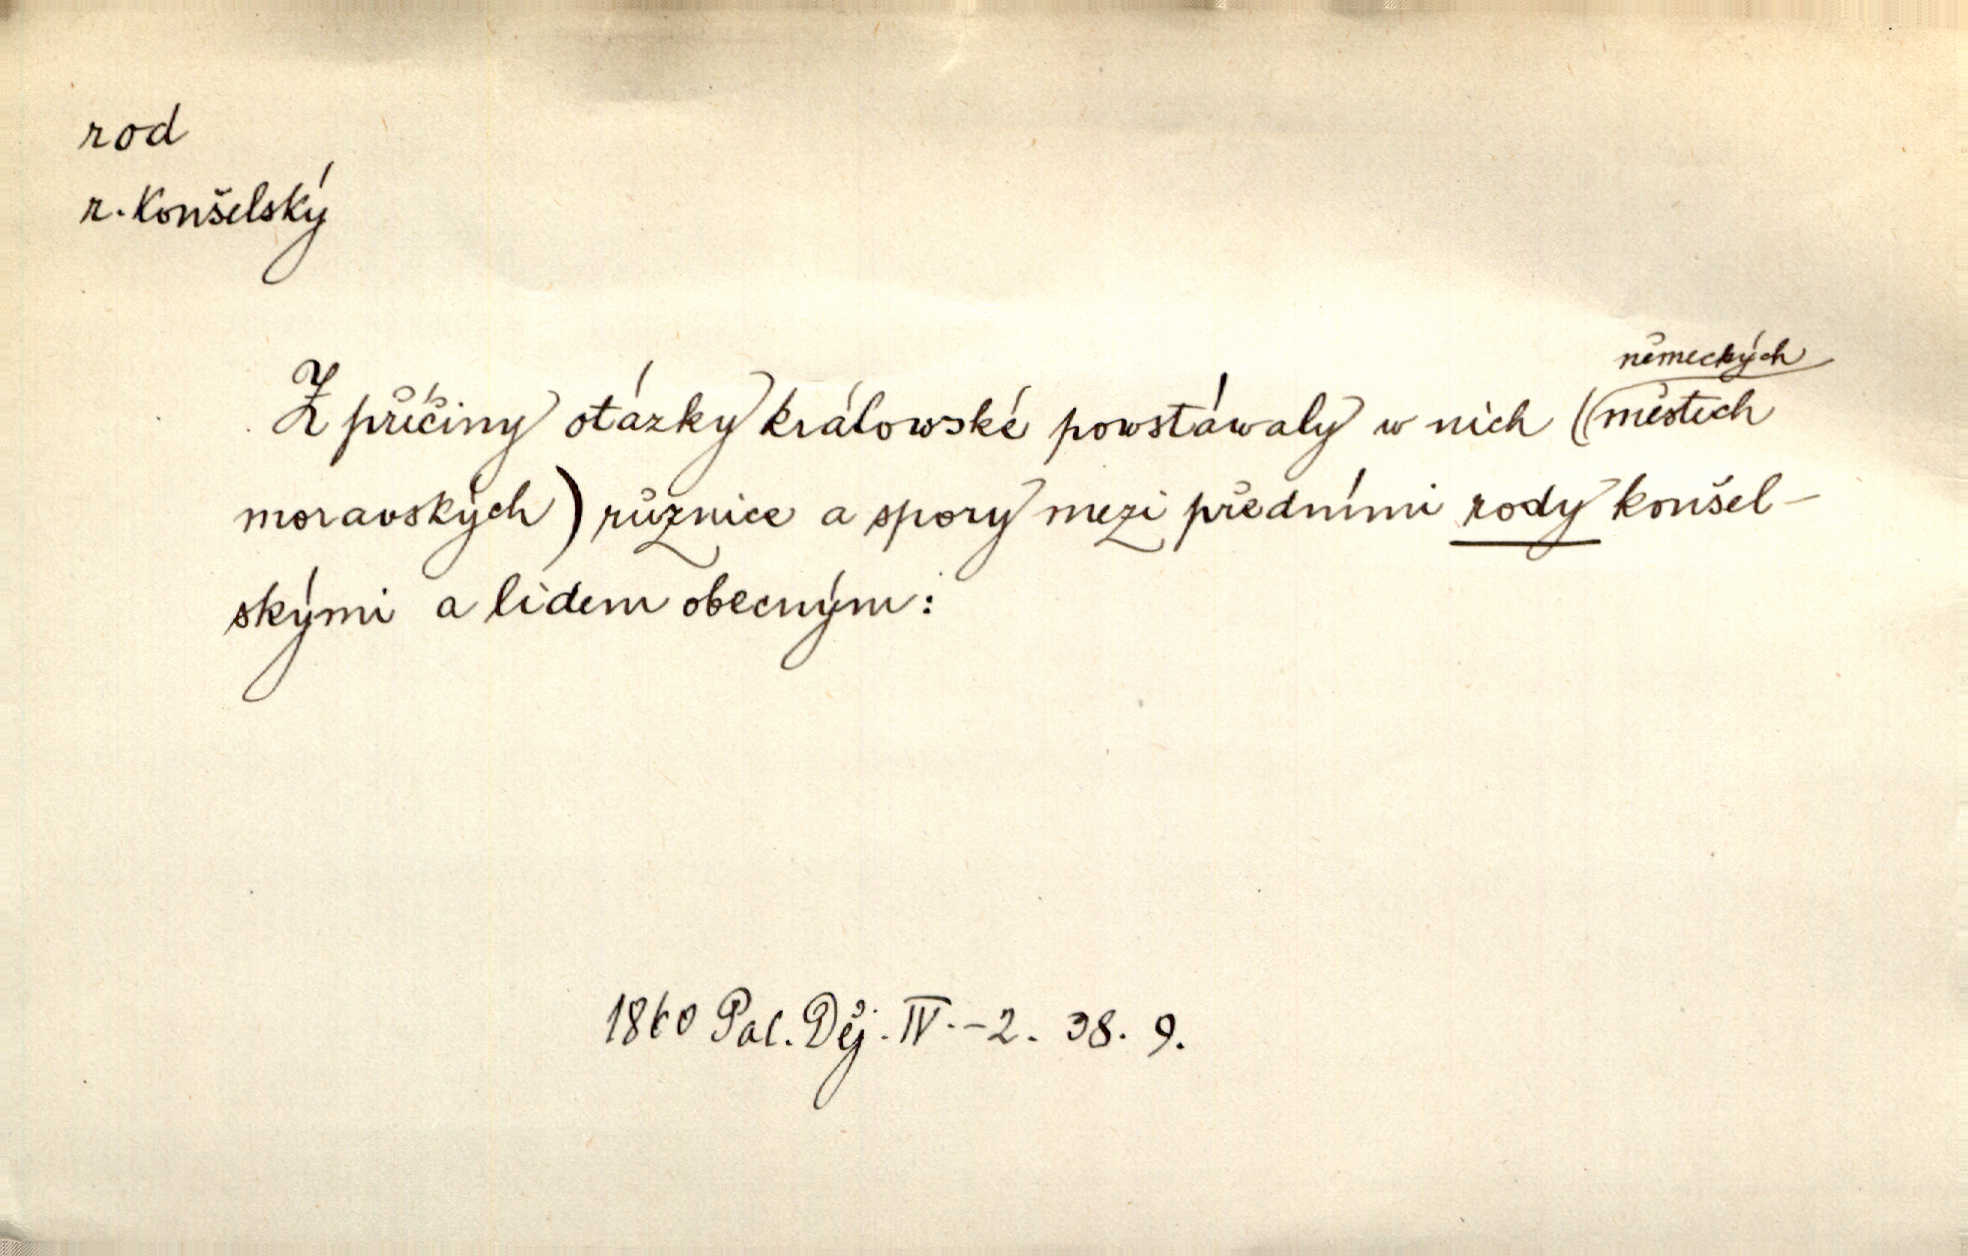 rod
r. Konšelský
německých
Z příčiny otázky králowské powstáwaly w nich (městech
moravských) různice a spory mezi předními rody konšel-
skými a lidem obecným:
1860 Pal. Děj. IV.-2. 38. 9.